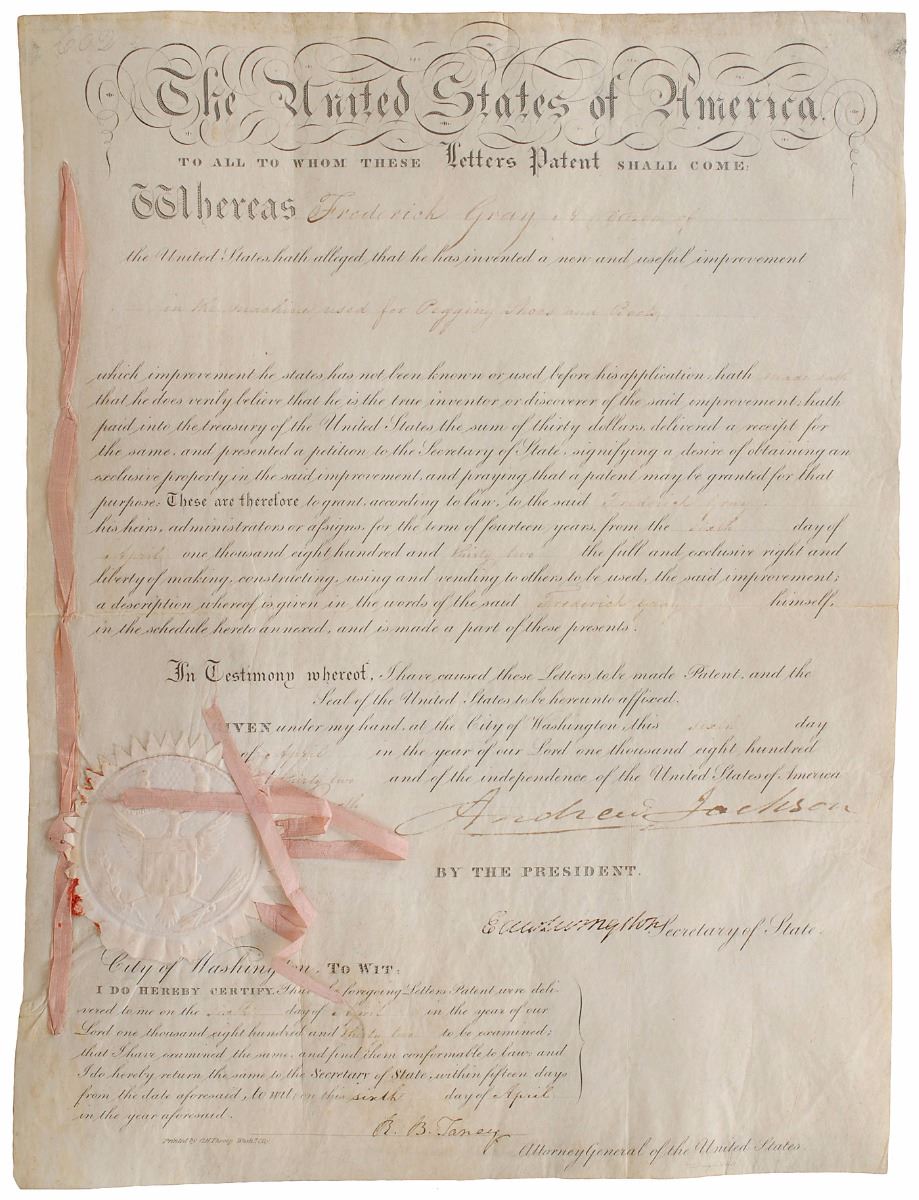 The United States of America.
TO ALL TO WHOM THESE Letters Patent SHALL COME:
Whereas Frederick Gray a citizen of
the United States, hath alleged that he has invented a new and useful improvement
in the machine used for Pegging Shoes and Boots,
which improvement he states has not been known or used before his application; hath made oath
that he does verily believe that he is the true inventor or discoverer of the said improvement; hath
paid into the treasury of the United States the sum of thirty dollars, delivered a receipt for
the same, and presented a petition to the Secretary of State, signifying a desire of obtaining an
exclusive property in the said improvement, and praying that a patent may be granted for that
purpose: These are therefore to grant, according to law, to the said Frederick Gray
his heirs, administrators or assigns, for the term of fourteen years, from the sixth day of
April one thousand eight hundred and thirty two the full and exclusive right and
liberty of making, constructing, using and vending to others to be used, the said improvement;
a description whereof is given in the words of the said Frederick Gray himself,
in the schedule hereto annexed, and is made a part of these presents.
In Testimony whereof, I have caused these Letters to be made Patent, and the
Seal of the United States to be hereunto affixed.
GIVEN under my hand, at the City of Washington, this sixth day
of April in the year of our Lord one thousand eight hundred
thirty two and of the independence of the United States of America
Andrew Jackson
BY THE PRESIDENT.
Edw. Livingston Secretary of State.
City of Washington, TO WIT:
I DO HEREBY CERTIFY, That the foregoing Letters Patent, were deli-
vered to me on the sixth day of April in the year of our
Lord one thousand eight hundred and thirty two to be examined;
that I have examined the same, and find them conformable to law; and
I do hereby return the same to the Secretary of State, within fifteen days
from the date aforesaid, to wit: on this sixth day of April
in the year aforesaid.
R. B. Taney
Attorney General of the United States.